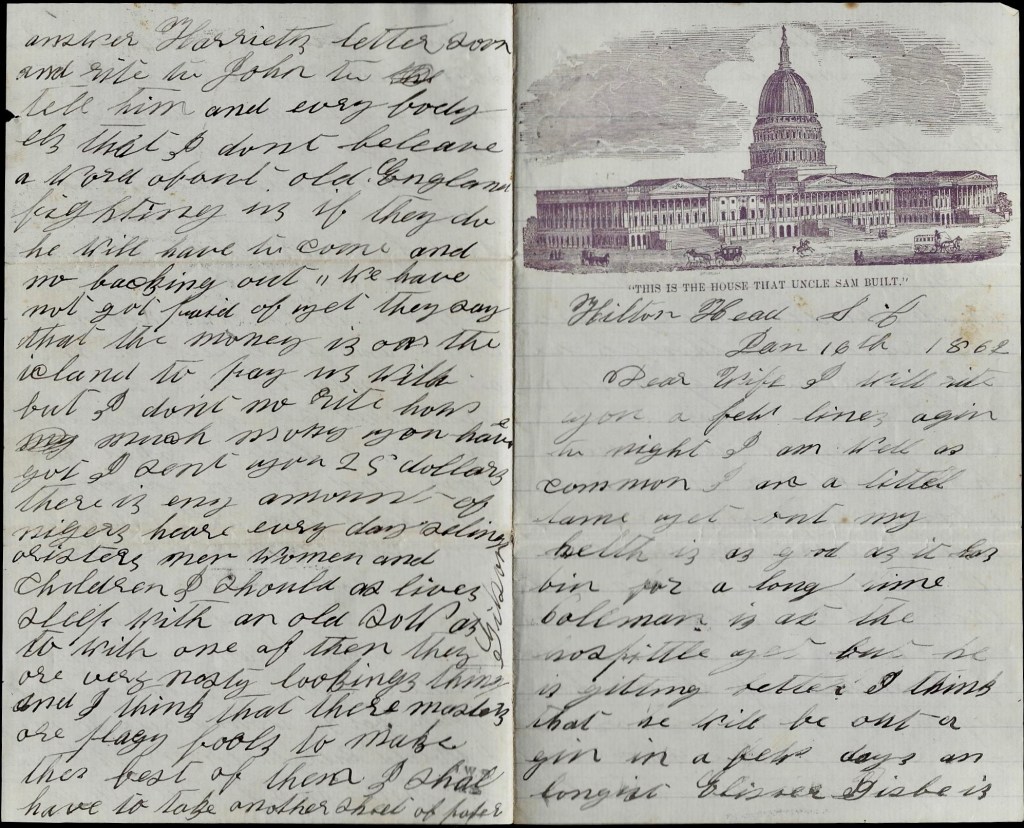 answer Harriets letter soon
and rite to John to
tell him and evry body
els that I dont beleave
a word about old England
fighting us if they do
he will have to come and
no backing out " We have
not got paid of yet they say
that the money is on the
island to pay us with
but I dont no rite how
much mony you have
got I sent you 25 dollars
there is eny amount of
nigers heare every day seling
oristers men women and
children I should as lives
sleep with an old sow as
to with one of them they
are very nasty lookings thing
and I think that there masters
are fools to make
the best of them I shal
have to take another sheat of paper
Gibson
"THIS IS THE HOUSE THAT UNCLE SAM BUILT."
Hilton Head S C
Jan 16th 1862
Dear Wife I will rite
you a few lines agin
to night I am well as
common I am a littel
lame yet but my
helth is as good as it has
bin for a long time
bollman is at the
hospittle yet but he
is giting better I think
that he will be out a
gin in a few days an
longist Elisver Bisbe is